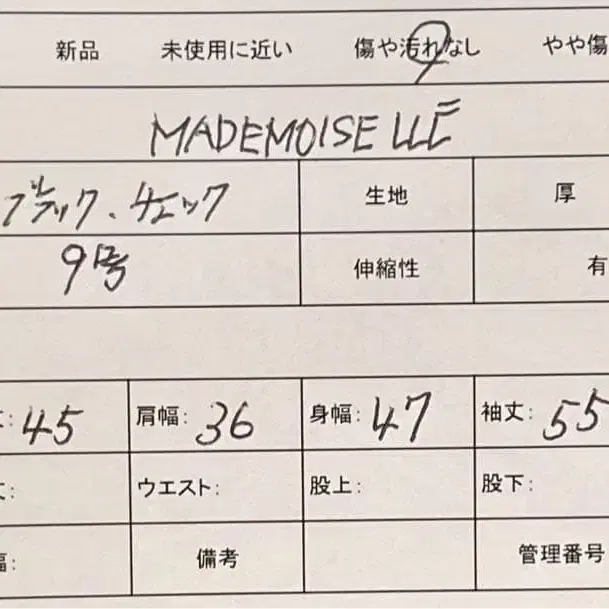 新品 未使用に近い 傷や汚れなし やや傷
MADEMOISELLE
ブラック、チェック 生地 厚
9号 伸縮性 有
: 45 肩幅: 36 身幅: 47 袖丈: 55
: ウエスト: 股上: 股下:
幅: 備考 管理番号